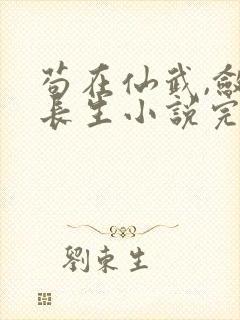 苟在仙武,斂
長生小說完
劉東生